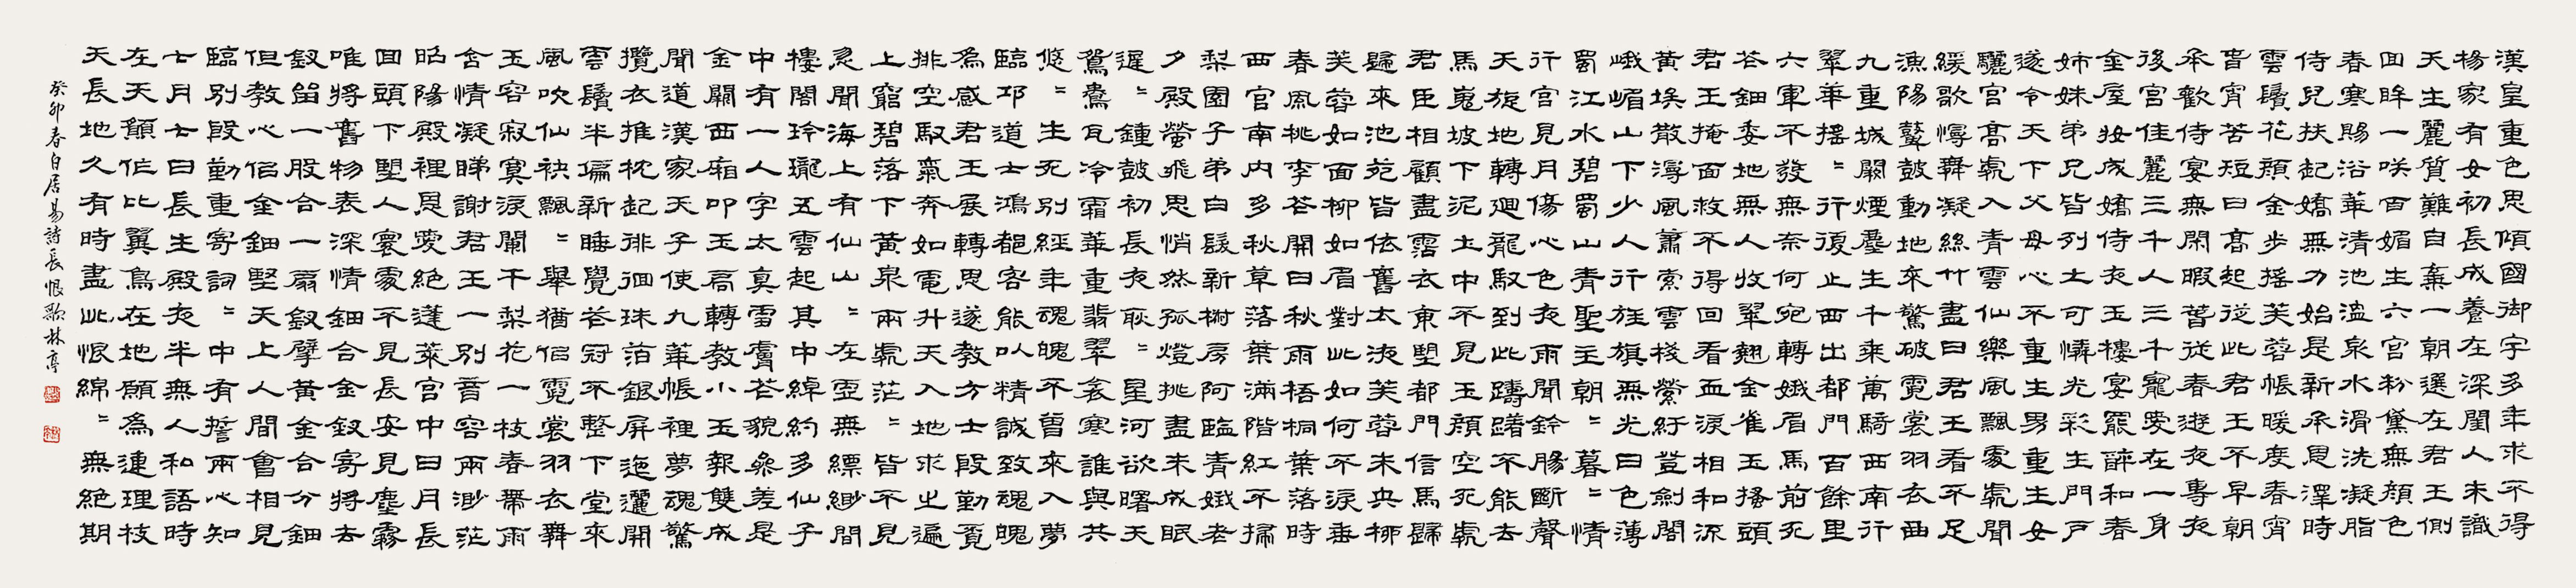 漢皇重色思傾國御宇多年求不得
楊家有女初長成養在深閨人未識
天生麗質難自棄一朝選在君王側
回眸一咲百媚生六宮粉黛無顏色
春寒賜浴華清池溫泉水滑洗凝脂
侍兒扶起嬌無力始是新承恩澤時
雲鬢花顏金步搖芙蓉帳暖度春宵
春宵苦短日高起從此君王不早朝
承歡侍宴無閑暇春從春遊夜專夜
後宮佳麗三千人三千寵愛在一身
金屋妝成嬌侍夜玉樓宴罷醉和春
姊妹弟兄皆列土可憐光彩生門戶
遂令天下父母心不重生男重生女
驪宮高處入青雲仙樂風飄處處聞
緩歌慢舞凝絲竹盡日君王看不足
漁陽鼙鼓動地來驚破霓裳羽衣曲
九重城闕煙塵生千乘萬騎西南行
翠華搖〻行復止西出都門百餘里
六軍不發無奈何宛轉娥眉馬前死
花鈿委地無人收翠翹金雀玉搔頭
君王掩面救不得回看血淚相和流
黃埃散漫風蕭索雲棧縈紆登劍閣
峨嵋山下少人行旌旗無光日色薄
蜀江水碧蜀山青聖主朝〻暮〻情
行宮見月傷心色夜雨聞鈴腸斷聲
天旋地轉迴龍馭到此躊躇不能去
馬嵬坡下泥土中不見玉顏空死處
君臣相顧盡霑衣東望都門信馬歸
歸來池苑皆依舊太液芙蓉未央柳
芙蓉如面柳如眉對此如何不淚垂
春風桃李花開日秋雨梧桐葉落時
西宮南內多秋草落葉滿階紅不掃
梨園子弟白髮新椒房阿臨青娥老
夕殿螢飛思悄然孤燈挑盡未成眠
遲〻鐘鼓初長夜耿〻星河欲曙天
鴛鴦瓦冷霜華重翡翠衾寒誰與共
悠〻生死別經年魂魄不曾來入夢
臨邛道士鴻都客能以精誠致魂魄
為感君王展轉思遂教方士殷勤覓
排空馭氣奔如電升天入地求之遍
上窮碧落下黃泉兩處茫〻皆不見
忽聞海上有仙山〻在虛無縹緲間
樓閣玲瓏五雲起其中綽約多仙子
中有一人字太真雪膚花貌參差是
金闕西廂叩玉扃轉教小玉報雙成
聞道漢家天子使九華帳裡夢魂驚
攬衣推枕起徘徊珠箔銀屏迤邐開
雲鬢半偏新睡覺花冠不整下堂來
風吹仙袂飄〻舉猶似霓裳羽衣舞
玉容寂寞淚闌干梨花一枝春帶雨
含情凝睇謝君王一別音容兩渺茫
昭陽殿裡恩愛絕蓬萊宮中日月長
回頭下望人寰處不見長安見塵霧
唯將舊物表深情鈿合金釵寄將去
釵留一股合一扇釵擘黃金合分鈿
但教心似金鈿堅天上人間會相見
臨別殷勤重寄詞〻中有誓兩心知
七月七日長生殿夜半無人和語時
在天願作比翼鳥在地願為連理枝
天長地久有時盡此恨綿〻無絕期
癸卯春白居易詩長恨歌林亭